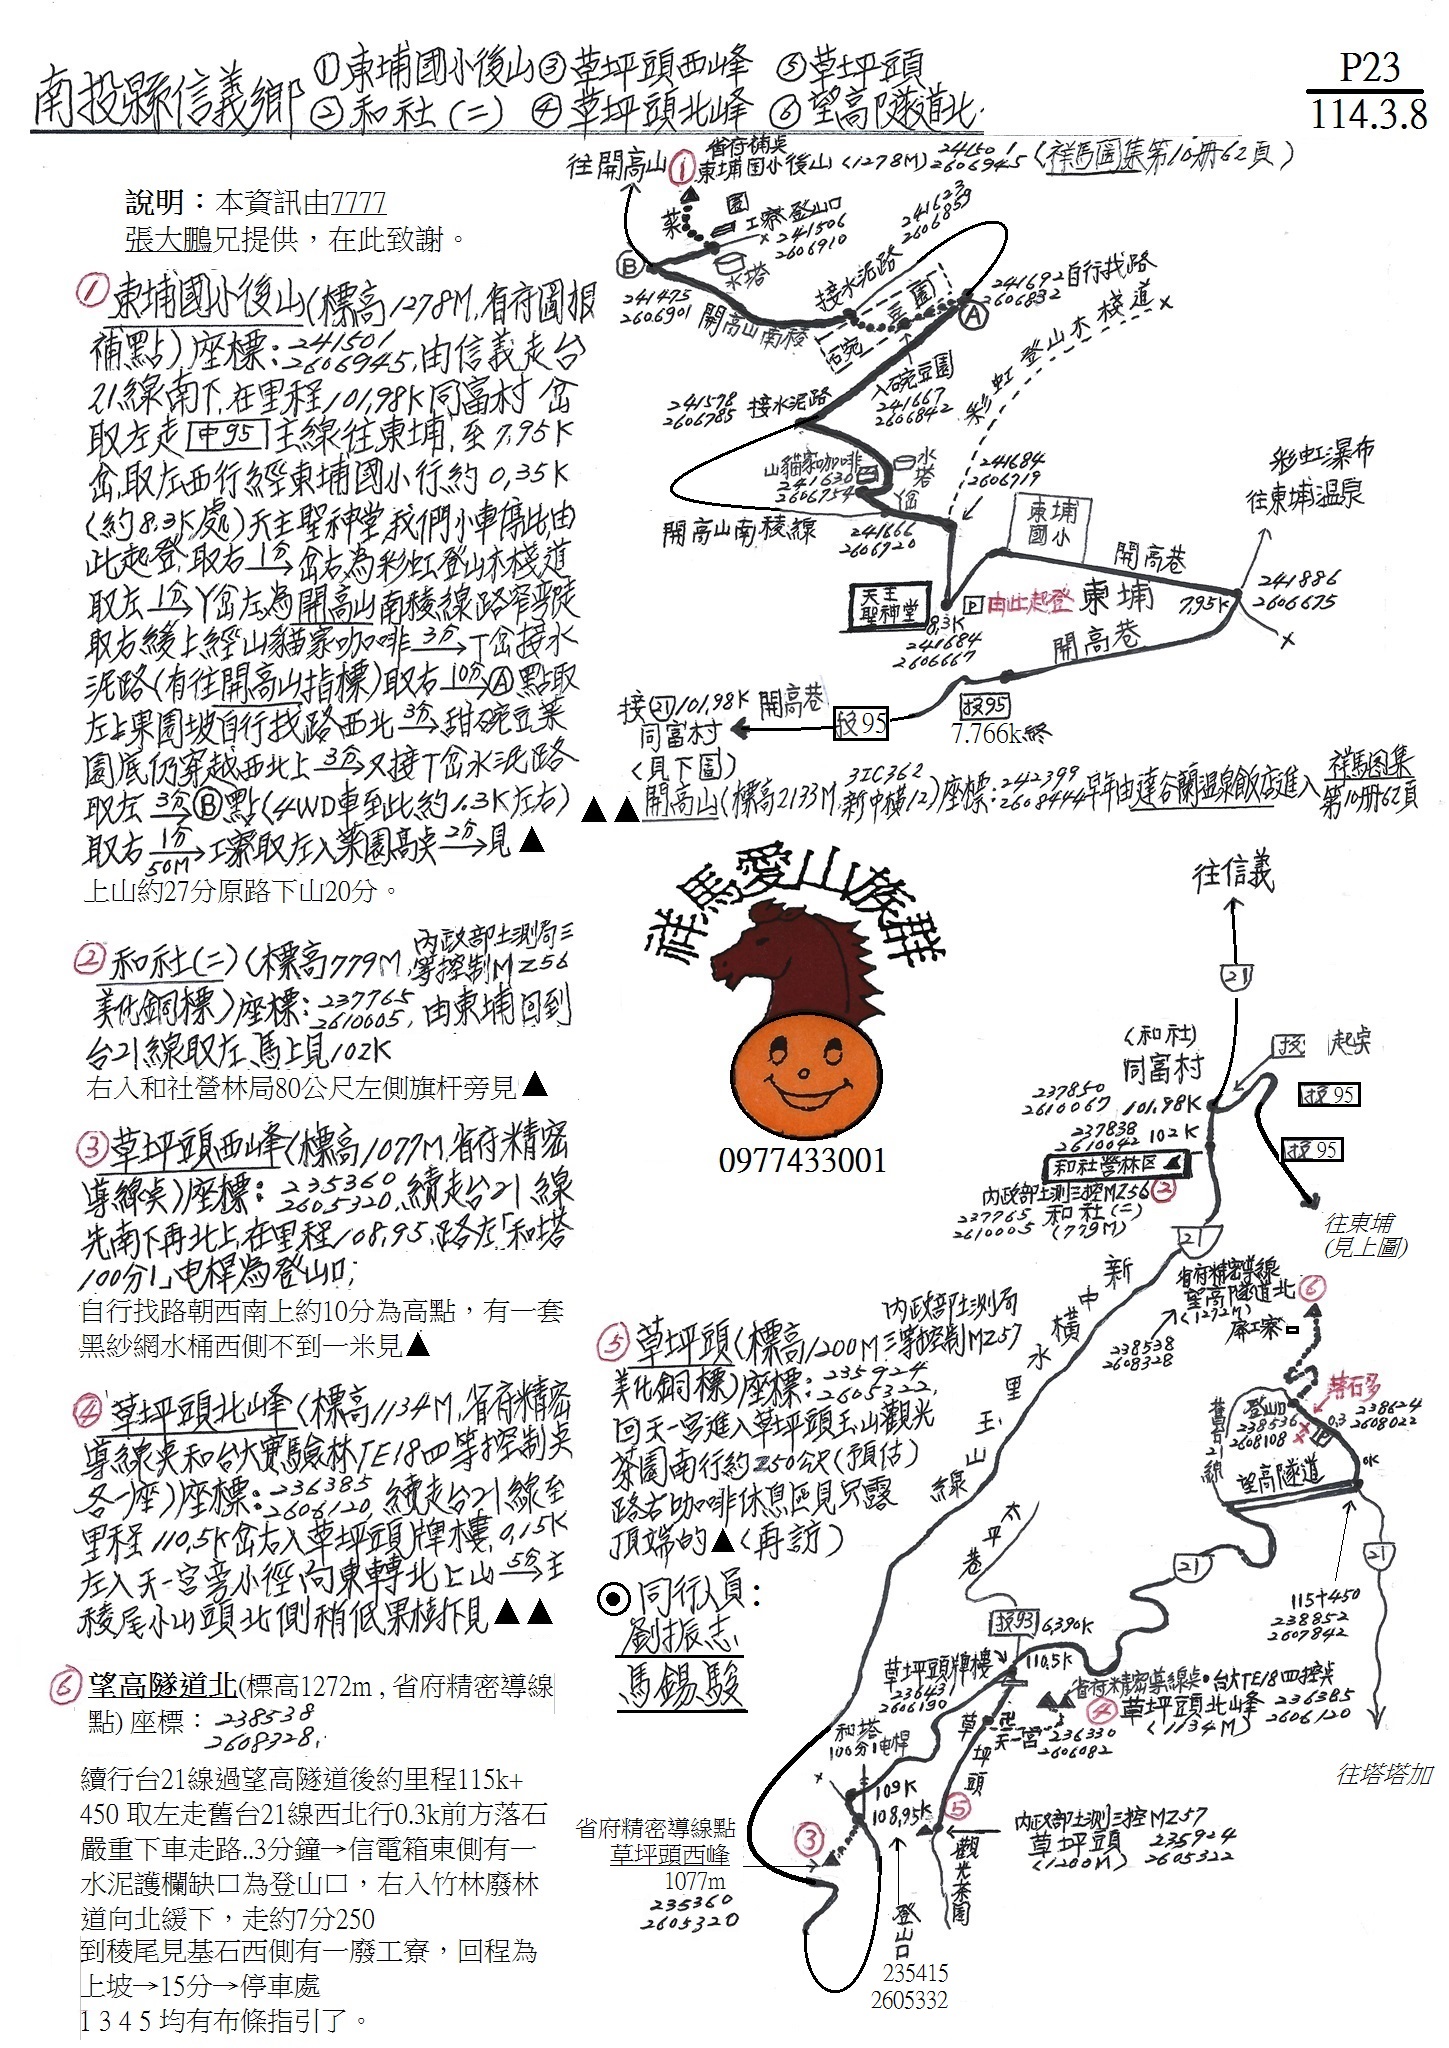 南投縣信義鄉
①東埔國小後山 ③草坪頭西峰 ⑤草坪頭
②和社(二) ④草坪頭北峰 ⑥望高隧道北
P23
114.3.8
說明：本資訊由7777
張大鵬兄提供，在此致謝。
①東埔國小後山(標高1278M,省府圖根
補點)座標:241501
2606945,由信義走台
21線南下,在里程101.98K同富村岔
取左走中95主線往東埔,至7.95K
岔,取左西行經東埔國小行約0.35K
(約8.3K處)天主聖神堂,我們小車停此,由
此起登,取右1分→岔右為彩虹登山木棧道
取左1分→丫岔左為開高山南稜線路窄彎陡
取右緩上經山貓家咖啡3分→丁岔接水
泥路(有往開高山指標)取右10分→Ⓐ點取
左上果園坡自行找路西北3分→甜碗豆菜
園底仍穿越西北上3分→又接丁岔水泥路
取左3分→Ⓑ點(4WD車至此約1.3K左右)
取右1分50M→工寮取左入菜園高点2分→見▲
上山約27分原路下山20分。
②和社(二)(標高779M,內政部土測局三
等控制MZ56
美化銅標)座標:237765
2610005,由東埔回到
台21線取左、馬上見102K
右入和社營林局80公尺左側旗杆旁見▲
③草坪頭西峰(標高1077M,省府精密
導線点)座標:235360
2605320,續走台21線
先南下再北上,在里程108.95,路左「和塔
100分1」電桿為登山口;
自行找路朝西南上約10分為高點，有一套
黑紗網水桶西側不到一米見▲
④草坪頭北峰(標高1134M,省府精密
導線点和台大實驗林TE18四等控制点
各一座)座標:236385
2606120,續走台21線至
里程110.5K岔右入草坪頭牌樓,0.15K
左入天一宮旁小徑,向東轉北上山5分→主
稜尾小山頭北側稍低果樹下見▲▲
⑥望高隧道北(標高1272m , 省府精密導線
點) 座標：238538
2608328,
續行台21線過望高隧道後約里程115k+
450 取左走舊台21線西北行0.3k前方落石
嚴重下車走路..3分鐘→信電箱東側有一
水泥護欄缺口為登山口，右入竹林廢林
道向北緩下，走約7分250
到稜尾見基石西側有一廢工寮，回程為
上坡→15分→停車處
1 3 4 5 均有布條指引了。
往開高山
①省府補点
東埔国小後山(1278M)241501
2606945(祥馬圖集第10冊62頁)
菜
園
工寮登山口
241506
2606910
水塔
Ⓑ
241475
2606901
開高山南稜
接水泥路
241623
2606859
碗
豆
園
Ⓐ
241692
2606832
自行找路
彩虹登山木棧道
入碗豆園
241667
2606842
241578
2606785
接水泥路
山貓家咖啡
241630
2606754
水塔
丫岔
241666
2606720
開高山南稜線
241684
2606719
東埔
國小
開高巷
彩虹瀑布
往東埔温泉
天主
聖神堂
P
由此起登
東埔
7.95K
241886
2606675
8.3K
241684
2606667
開高巷
投95
7.766k終
投95
開高巷
接㉑101.98K
同富村
(見下圖)
▲▲開高山(標高2133M,3IC362
新中橫12)座標:242399
2608444早年由達谷蘭溫泉飯店進入
祥馬图集
第10冊62頁
祥馬愛山族群
0977433001
往信義
21
(和社)
同富村
投 起点
投95
投95
往東埔
(見上圖)
237850
2610067
101.98K
237838
2610042
102K
和社營林区▲
內政部土測三控MZ56②
237765
2610005
和社(二)
(779M)
21
新中橫
水里玉山線
省府精密導線
望高隧道北⑥
(1272M)
廢工寮
238538
2608328
落石多
登山口
238536
2608108
P
0.3
238624
2608022
舊台21線
望高隧道
0K
21
21
115+450
238852
2607842
往塔塔加
⑤草坪頭(標高1200M內政部土測局
三等控制MZ57
美化銅標)座標:235924
2605322,
回天一宮進入草坪頭玉山觀光
茶園南行約250公尺(預估)
路右咖啡休息區見只露
頂端的▲(再訪)
⊙同行人員:
劉振志
馬錫駿
太平巷
投93
6.390K
草坪頭牌樓
236431
2606190
110.5K
省府精密導線点•台大TE18四控点
④草坪頭北峰
(1134M)
236385
2606120
天一宮
236330
2606082
草坪頭
和塔
100分1電桿
109K
108.95K
③
⑤
內政部土測三控MZ57
草坪頭
(1200M)
235924
2605322
觀光茶園
省府精密導線點
草坪頭西峰
1077m
235360
2605320
登山口
235415
2605332